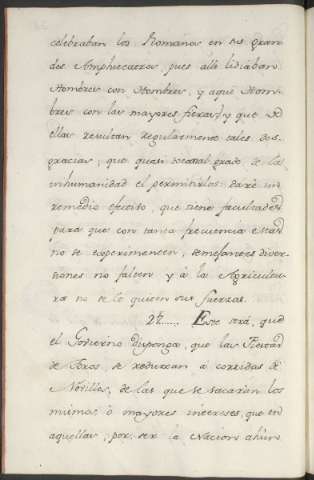 celebraban los Romanos en sus gran
des Amphiteatros pues alli lidiaban
Hombres con Hombres, y aqui Hom-
bres con las mayores fieras) y que de
ellas resultan regularmente tales des-
gracias, que quasi toca al grado de la
inhumanidad el permitirlos: daré un
remedio efectivo, que tiene facultades
para que con tanta frecuencia estas
no se experimenten, semejantes diver-
siones no falten y à la Agricultu-
ra no se le quiten sus fuerzas.
27..... Este será, que
el Govierno disponga, que las Fiestas
de Toros, se reduzcan à corridas de
Novillos, de las que se sacarán los
mismos ò mayores intereses, que en
aquellas, por ser la Nacion ahùn